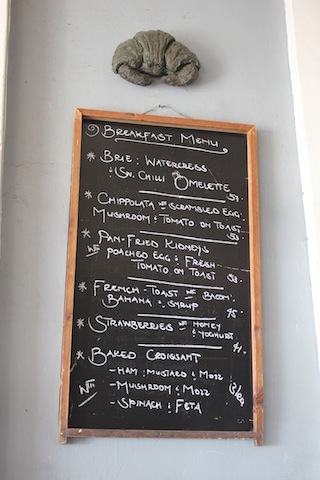 Breakfast Menu
* Brie: Watercress
& Sw. Chilli Omelette
* Chippolata w/ Scrambled Egg.
Mushroom & Tomato on Toast
* Pan-Fried Kidneys
w/ Poached Egg & Fresh
Tomato on Toast
* French-Toast w/ Bacon.
Banana & Syrup
* Strawberries w/ Honey
& Yoghurt
* Baked Croissant
- Ham, Mustard & Mozz
- Mushroom & Mozz
- Spinach & Feta